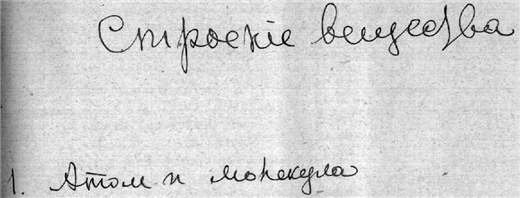 Строенiе вещества
1. Атом и молекула